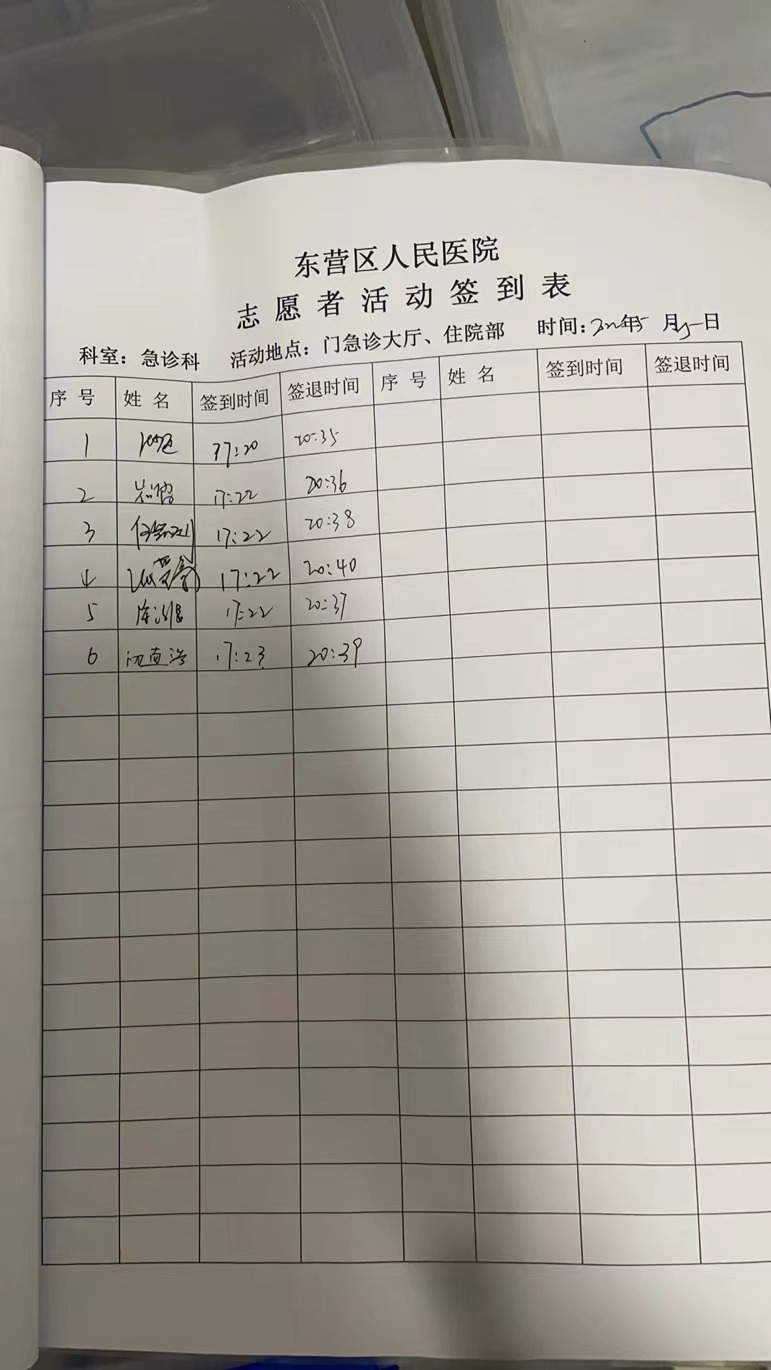 东营区人民医院
志愿者活动签到表
科室：急诊科 活动地点：门急诊大厅、住院部 时间：年5月日
序号 姓名 签到时间 签退时间 序号 姓名 签到时间 签退时间
1 17:20 20:35
2 17:22 20:36
3 17:22 20:38
4 17:22 20:40
5 17:22 20:37
6 17:23 20:39